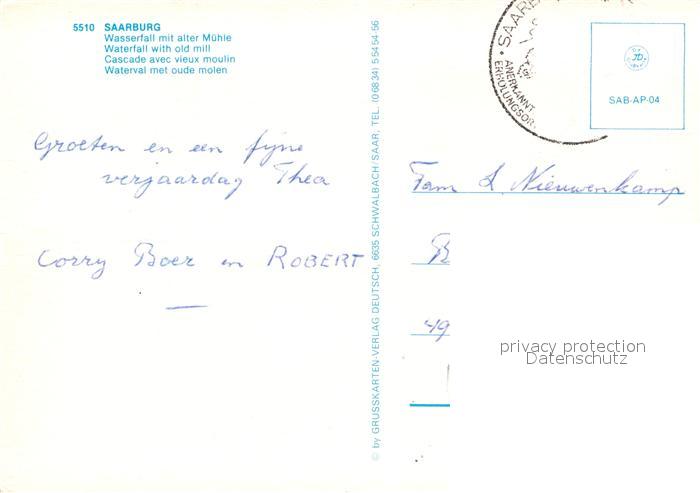 5510 SAARBURG
Wasserfall mit alter Mühle
Waterfall with old mill
Cascade avec vieux moulin
Waterval met oude molen
Groeten en een fijne
verjaardag Thea
Corry Boer en ROBERT
© by GRUSSKARTEN-VERLAG DEUTSCH, 6635 SCHWALBACH/SAAR, TEL. (0 68 34) 5 54 54-56
ANERKANNT
ERHOLUNGSOR
JD
SAB-AP-04
Fam L Nieuwenkamp
B
49
privacy protection
Datenschutz